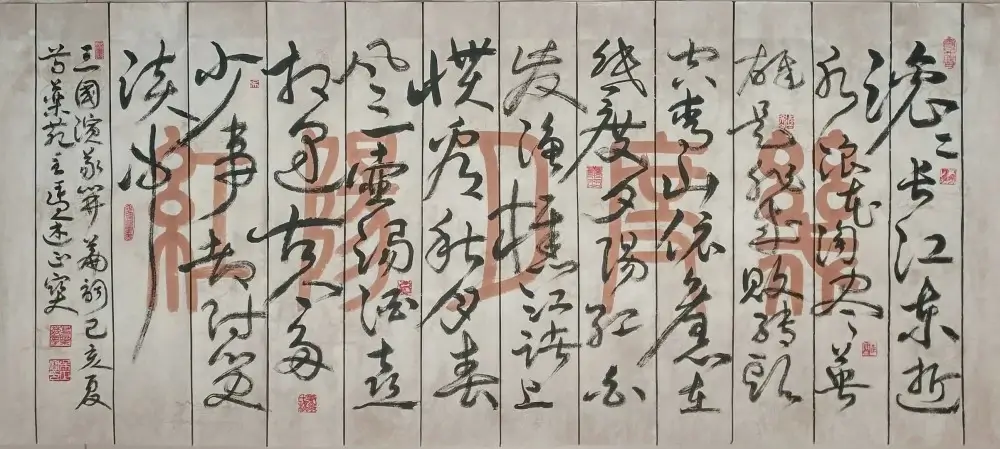 滚〻长江东逝
水浪花淘尽英
雄是非成败转头
空青山依旧在
几度夕陽红白
发渔樵江渚上
惯看秋月春
风一壶濁酒喜
相逢古今多
少事都付笑
谈中
三國演義開篇詞己亥夏
苑主
幾度夕陽紅